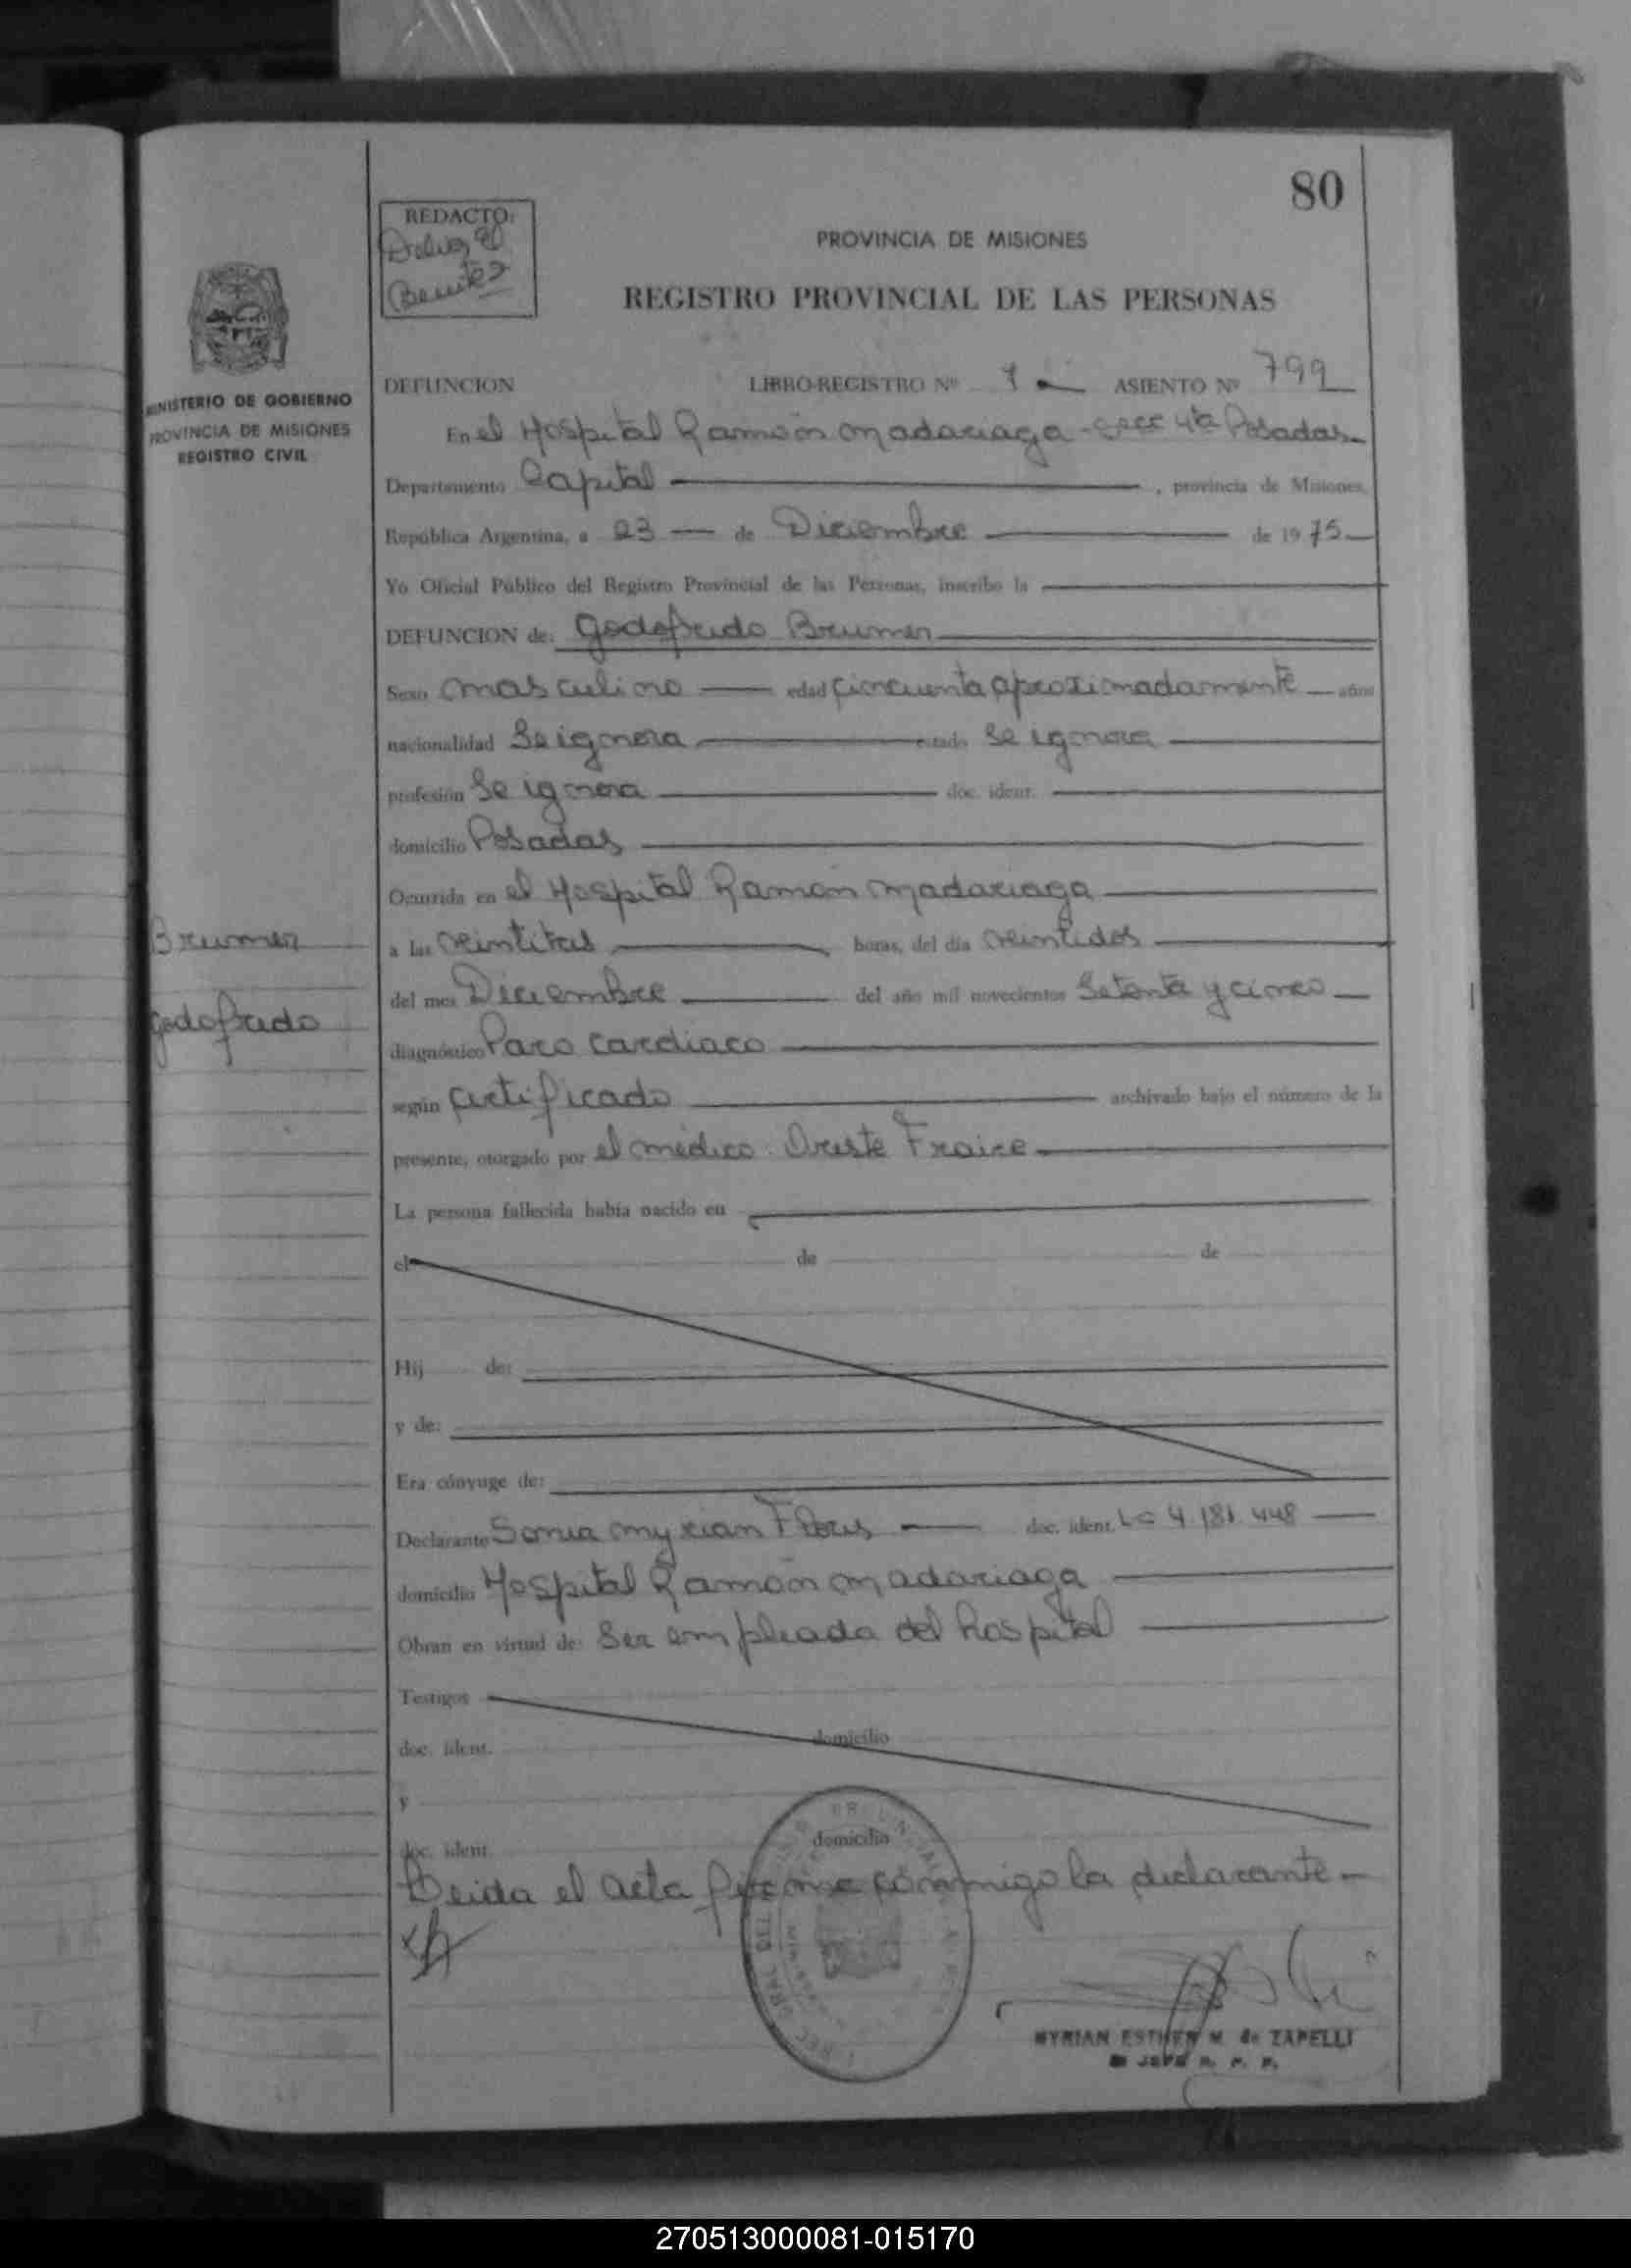 80
REDACTO:
Benitez
PROVINCIA DE MISIONES
REGISTRO PROVINCIAL DE LAS PERSONAS
MINISTERIO DE GOBIERNO
PROVINCIA DE MISIONES
REGISTRO CIVIL
DEFUNCION LIBRO-REGISTRO Nº 1 ASIENTO Nº 799
En el Hospital Ramón Madariaga - secc 4ta Posadas
Departamento Capital , provincia de Misiones,
República Argentina, a 23 de Diciembre de 1975
Yo Oficial Público del Registro Provincial de las Personas, inscribo la
DEFUNCION de: Godofredo Brumer
Sexo masculino edad cincuenta aproximadamente años
nacionalidad Se ignora estado Se ignora
profesión Se ignora doc. ident.
domicilio Posadas
Ocurrida en el Hospital Ramón Madariaga
Brumer
a las veintitres horas, del día veintidos
del mes Diciembre del año mil novecientos Setenta y cinco
Godofredo
diagnóstico Paro cardiaco
según certificado archivado bajo el número de la
presente, otorgado por el médico: Oreste Fraire
La persona fallecida había nacido en
el de de
Hij de:
y de:
Era cónyuge de:
Declarante Sonia Myrian Flores doc. ident. LC 4.181.448
domicilio Hospital Ramón Madariaga
Obran en virtud de: Ser empleada del hospital
Testigos
doc. ident. domicilio
y
doc. ident. domicilio
Leida el acta firma conmigo la declarante
MYRIAN ESTHER M. de ZAPELLI
JEFE R. P. P.
270513000081-015170